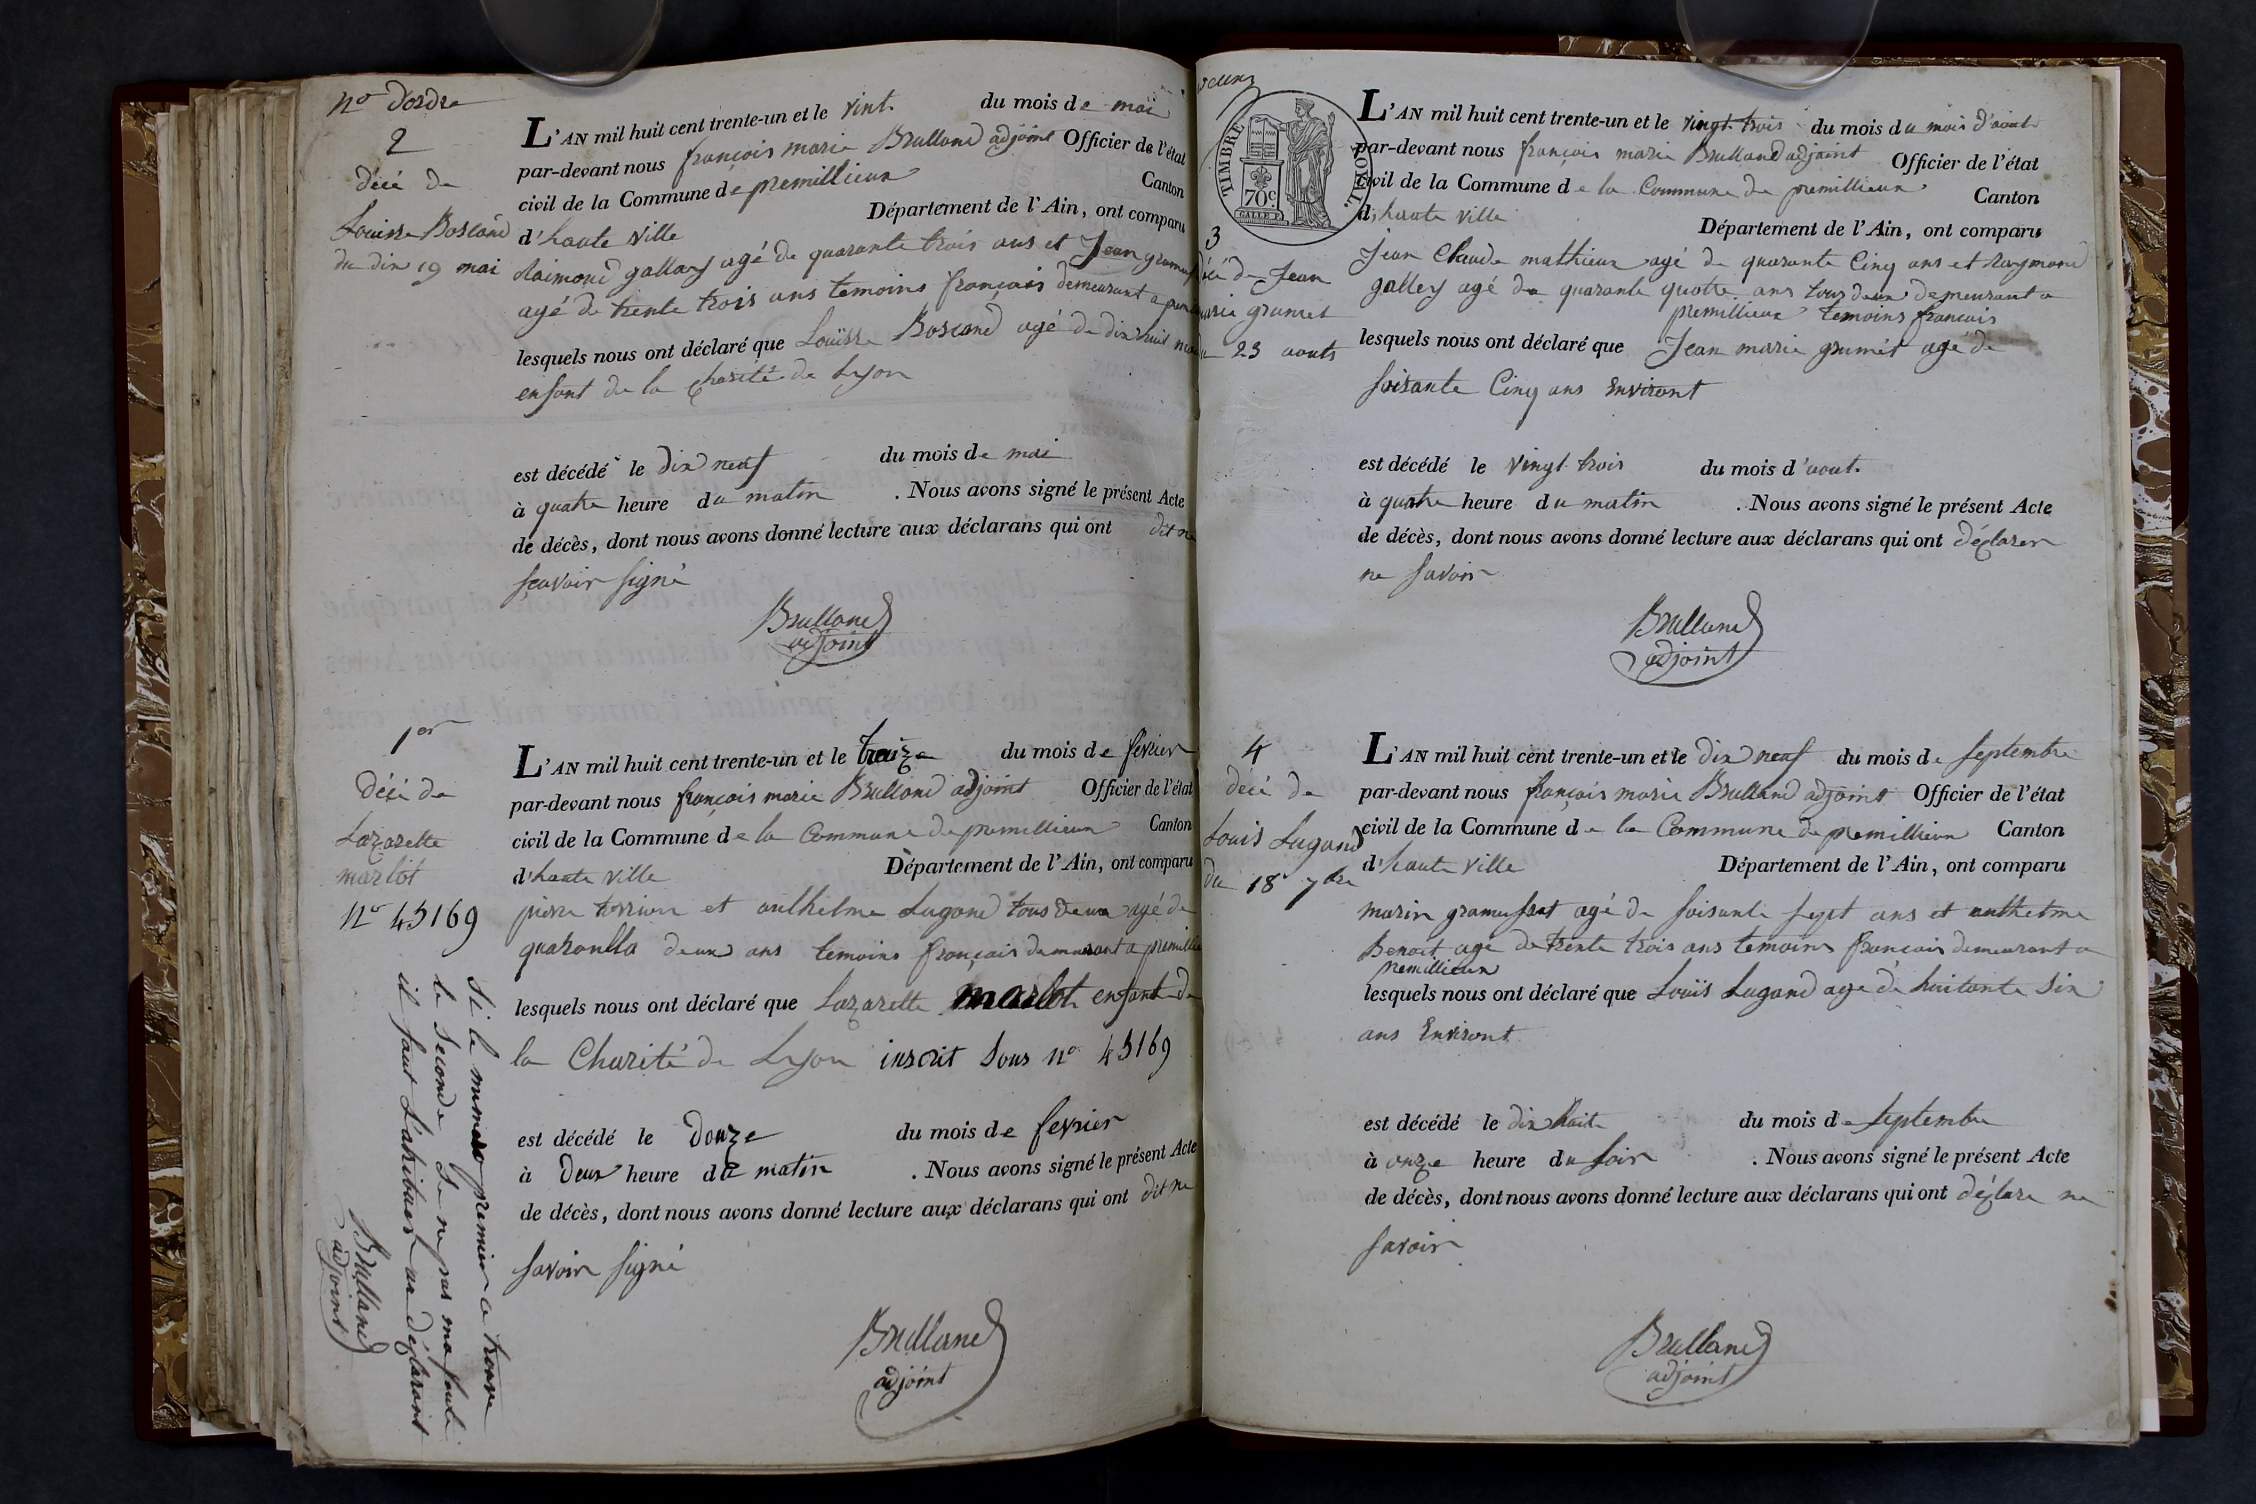 No d'ordre
2
décé de
Louisse Boscand
du dix 19 mai
L'AN mil huit cent trente-un et le vint du mois de mai
par-devant nous françois marie Brulland adjoint Officier de l'état
civil de la Commune de premillieux Canton
d'haute ville Département de l'Ain, ont comparu
Raimond gallay agé de quarante trois ans et Jean
agé de trente trois ans temoins français demeurant a
lesquels nous ont déclaré que Louïsse Boscand agé de dix huit
enfant de la Charité de Lyon
est décédé le dix neuf du mois de mai
à quatre heure du matin . Nous avons signé le présent Acte
de décès, dont nous avons donné lecture aux déclarans qui ont dit ne
sçavoir signé
Brulland
adjoint
1er
décé de
Lazarette
marlot
No 45169
Si le numero premier a trouve
le seconde Se ne pas ma faute
il faut L'atribuer au déclarant
Brulland
adjoint
L'AN mil huit cent trente-un et le treize du mois de février
par-devant nous françois marie Brulland adjoint Officier de l'état
civil de la Commune de la Commune de premillieux Canton
d'haute ville Département de l'Ain, ont comparu
pierre et anthelme Lugand tous deux agé de
deux ans temoins français demeurant a
lesquels nous ont déclaré que Lazarette marlot enfant de
la Charité de Lyon inscrit Sous no 45169
est décédé le Douze du mois de fevrier
à Deux heure du matin . Nous avons signé le présent Acte
de décès, dont nous avons donné lecture aux déclarans qui ont dit ne
savoir signé
Brulland
adjoint
TIMBRE ROYAL.
70c
3
décé de Jean
marie grumet
du 23 aouts
L'AN mil huit cent trente-un et le vingt trois du mois du mois d'aout
par-devant nous françois marie Brulland adjoint Officier de l'état
civil de la Commune de la Commune de premillieux Canton
d'haute ville Département de l'Ain, ont comparu
Jean Claude mathieux agé de quarante Cinq ans et Raymond
galley agé de quarante quatre ans tous deux demeurant a
premillieux temoins français
lesquels nous ont déclaré que Jean marie grumet agé de
soixante Cinq ans Environt
est décédé le vingt trois du mois d'aout
à quatre heure du matin . Nous avons signé le présent Acte
de décès, dont nous avons donné lecture aux déclarans qui ont déclarer
ne savoir
Brulland
adjoint
4
décé de
Louis Lugand
du 18 7bre
L'AN mil huit cent trente-un et le dix neuf du mois de septembre
par-devant nous françois marie Brulland adjoint Officier de l'état
civil de la Commune de la Commune de premillieux Canton
d'haute ville Département de l'Ain, ont comparu
marin gramusset agé de soisante sept ans et anthelme
Benoit agé de trente trois ans temoins français demeurant a
premillieux
lesquels nous ont déclaré que Louïs Lugand agé de huitante six
ans Environt
est décédé le dix huit du mois de septembre
à onze heure du soir . Nous avons signé le présent Acte
de décès, dont nous avons donné lecture aux déclarans qui ont déclare ne
savoir
Brulland
adjoint